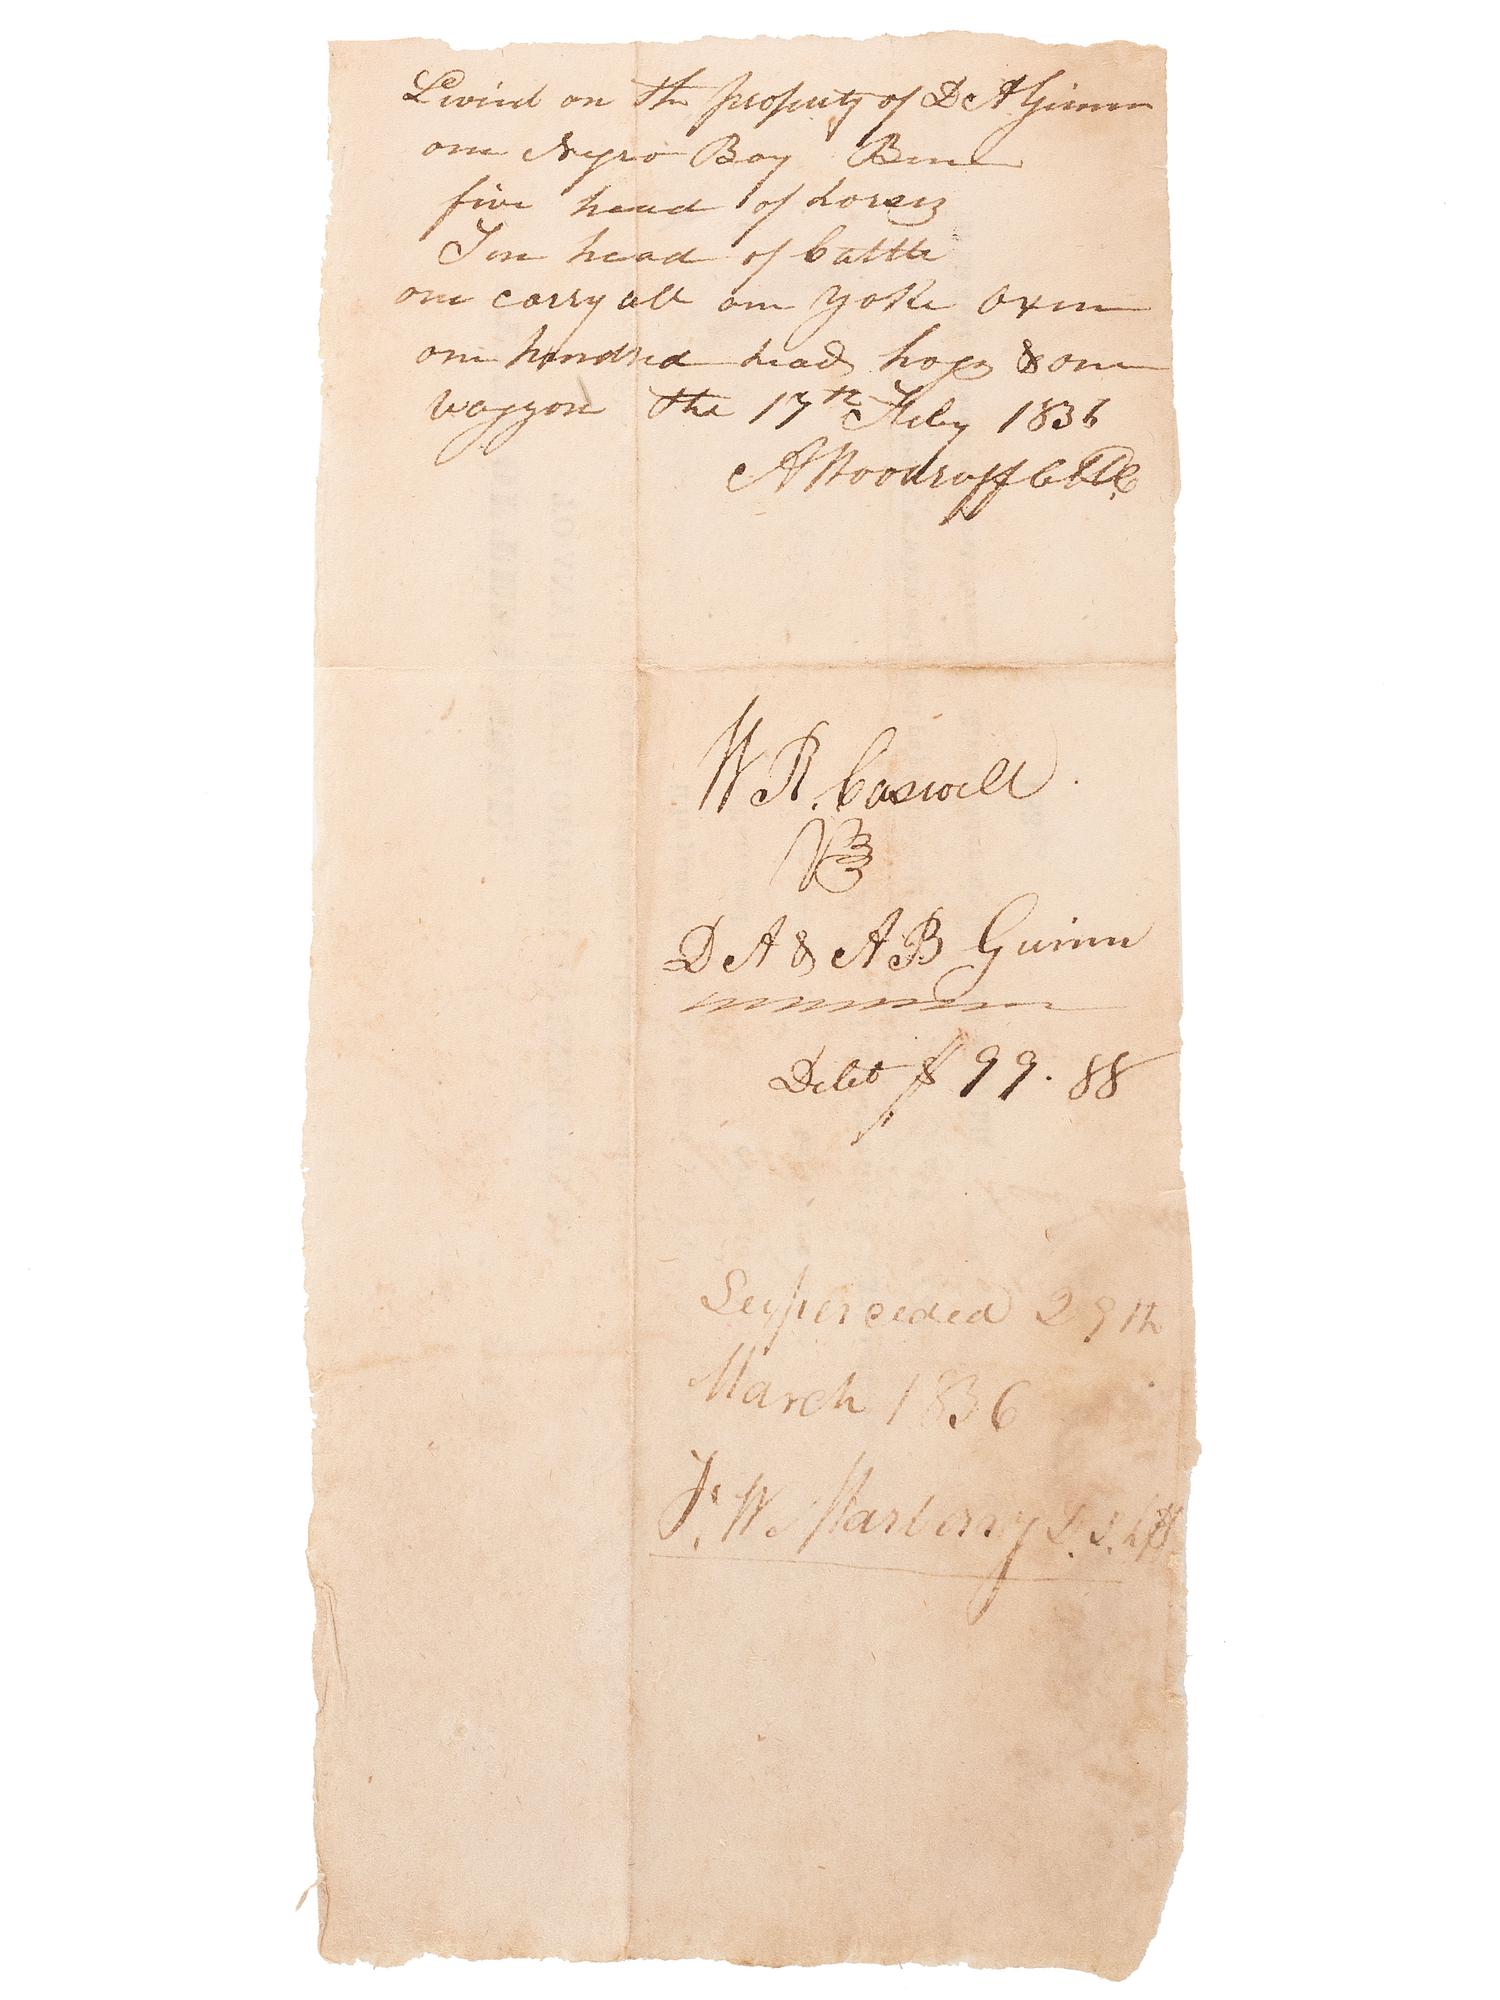 Levied on the property of D A Guinn
one Negro Boy Ben
five head of horses
Ten head of Cattle
one carry all one yoke Oxen
one hundred head hogs & one
waggon the 17th Feby 1836
A Woodruff
W R. Caswell
vs
D A & A B Guinn
Debt $ 99. 88
Superceded 29th
March 1836
W Marberry